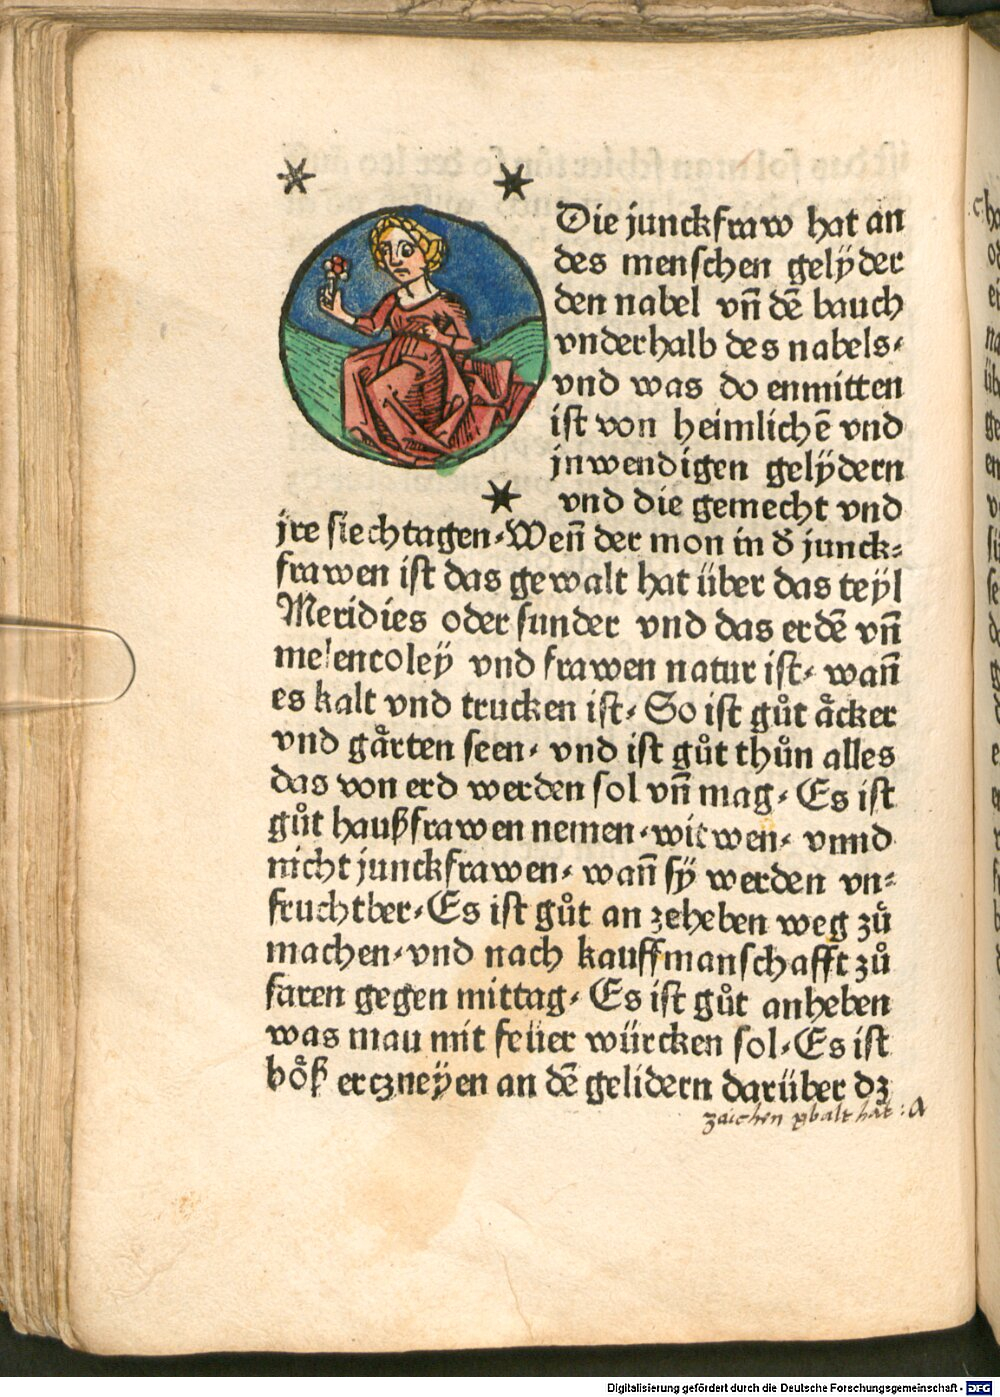 Die junckfraw hat an
des menschen gelÿder
den nabel vñ dẽ bauch
vnderhalb des nabels⸗
vnd was do enmitten
ist von heimlichẽ vnd
jnwendigen gelÿdern
vnd die gemecht vnd
jre siechtagen⸗Weñ der mon in d̓ junck⸗
frawen ist das gewalt hat über das teÿl
Meridies oder sunder vnd das erdẽ vñ
melencoleÿ vnd frawen natur ist⸗ wañ
es kalt vnd trucken ist⸗ So ist gůt aͤcker
vnd gaͤrten seen⸗ vnd ist gůt thůn alles
das von erd werden sol vñ mag⸗ Es ist
gůt haußfrawen nemen⸗witwen⸗ vnnd
nicht junckfrawen⸗ wañ sÿ werden vn⸗
fruchtber⸗Es ist gůt an zeheben weg zů
machen⸗vnd nach kauffmanschafft zů
faren gegen mittag⸗ Es ist gůt anheben
was mau mit feüer würcken sol⸗Es ist
boͤß erczneÿen an dẽ gelidern darüber dz
zaichen gbalt hat : A
Digitalisierung gefördert durch die Deutsche Forschungsgemeinschaft - DFG